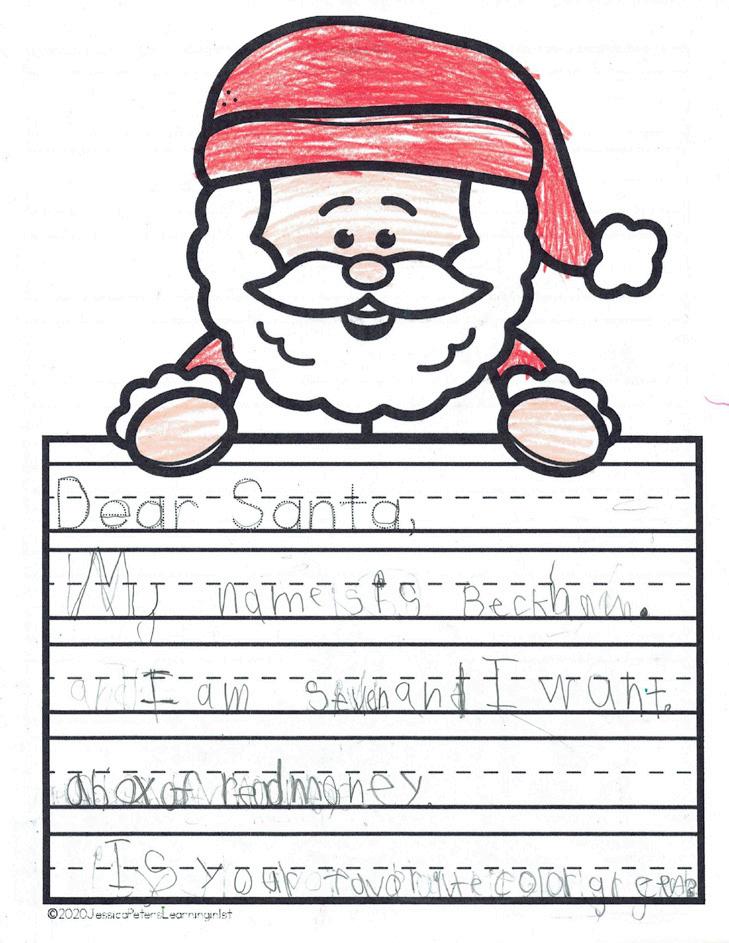 Dear Santa,
My name is Beckham.
I am seven and I want.
a box of read money.
Is your favorite color green?
©2020JessicaPetersLearningin1st